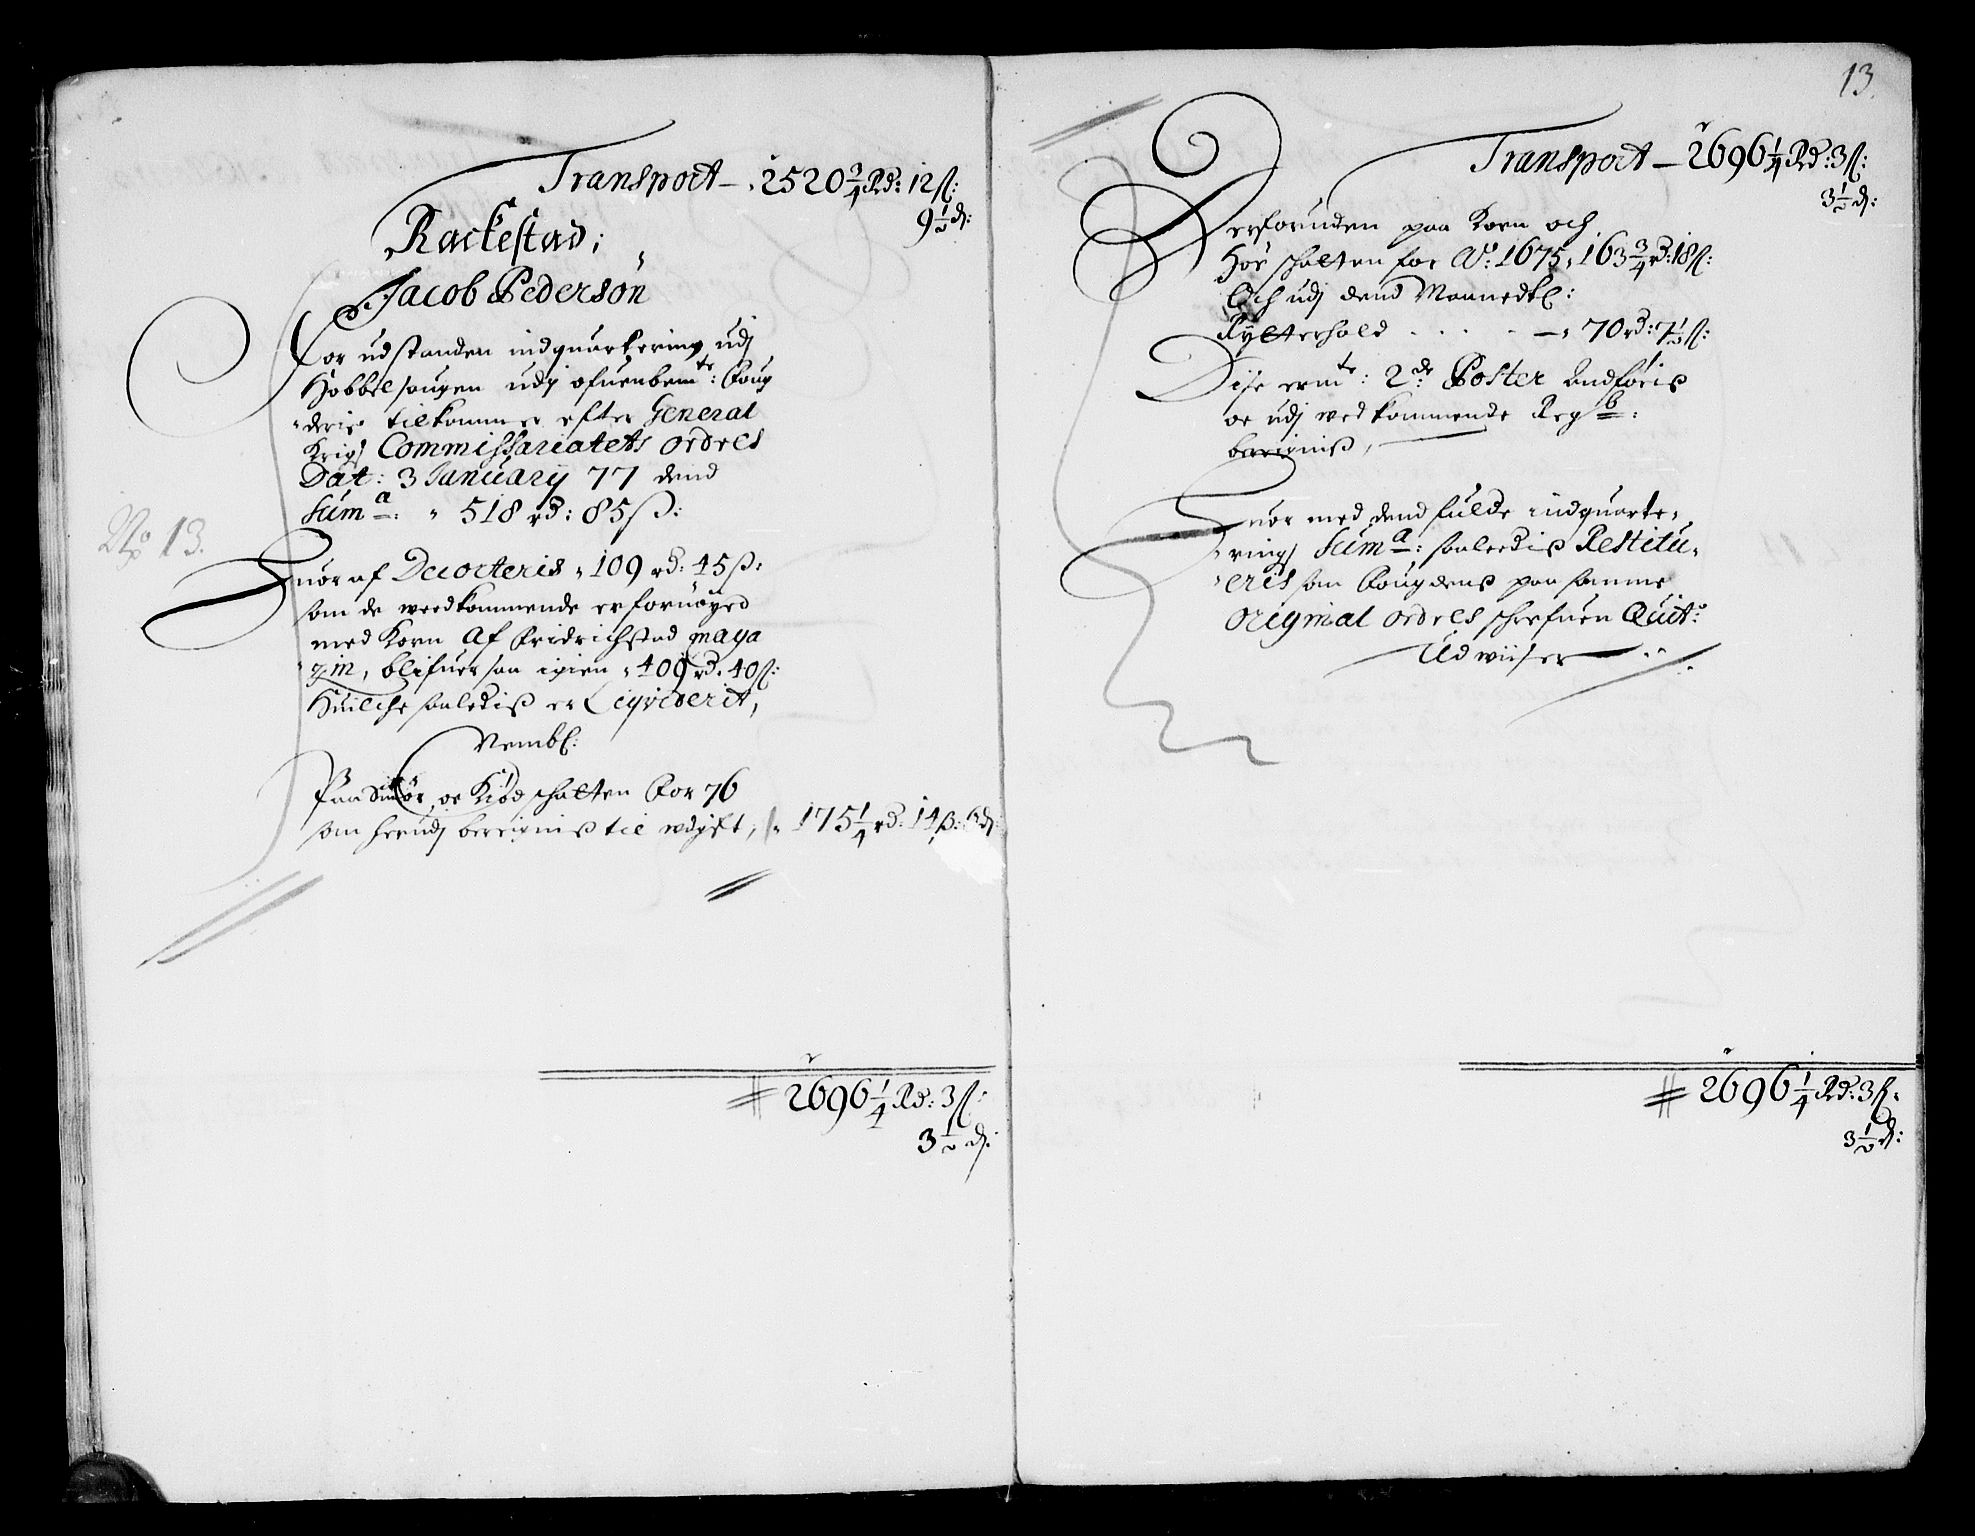 Transport — 2520 3/4 Rd: 12 ß:
9 1/2 d:
Rackestad;
Jacob Pedersøn
For udstanden indquartering udj
Hobbelsougen udj ofuenbemte: Foug
derie tilkommer efter General
Krigs Commissariatets ordres
Dat: 3 Januarij 77 dend
Suma: 518 rd: 85 ß:
No 13.
Huor af Decorteris 109 rd: 45 ß:
som de wedkommende er fornøyed
med Korn Af Fridrichstad maga
zin, blifuer saa igien 409 rd. 40 ß:
Huilche saaledis er Liqviderit,
Nembl:
Paa Smør oc Kiød schatten for 76
som herudj beregnis til udgift, 175 1/4 rd: 14 ß: 6 d:
2696 1/4 Rd: 3 ß:
3 1/2 d:
13.
Transport — 2696 1/4 Rd: 3 ß:
3 1/2 d:
Derforuden paa Korn och
Hør schatten for Ao: 1675, 163 3/4 rd: 18 ß:
Och udj dend Maanedtl:
Rytterhold — 70 rd: 7 1/2 ß:
Dise ermte: 2de Poster Andføris
oc udj wedkommende Regsb:
beregnis,
Huor med dend fulde indquarte-
rings Suma: saaledis Restitu-
eris som Fougdens paa samme
Original ordres schrefuen Quit:
Udwiiser
2696 1/4 Rd: 3 ß:
3 1/2 d: